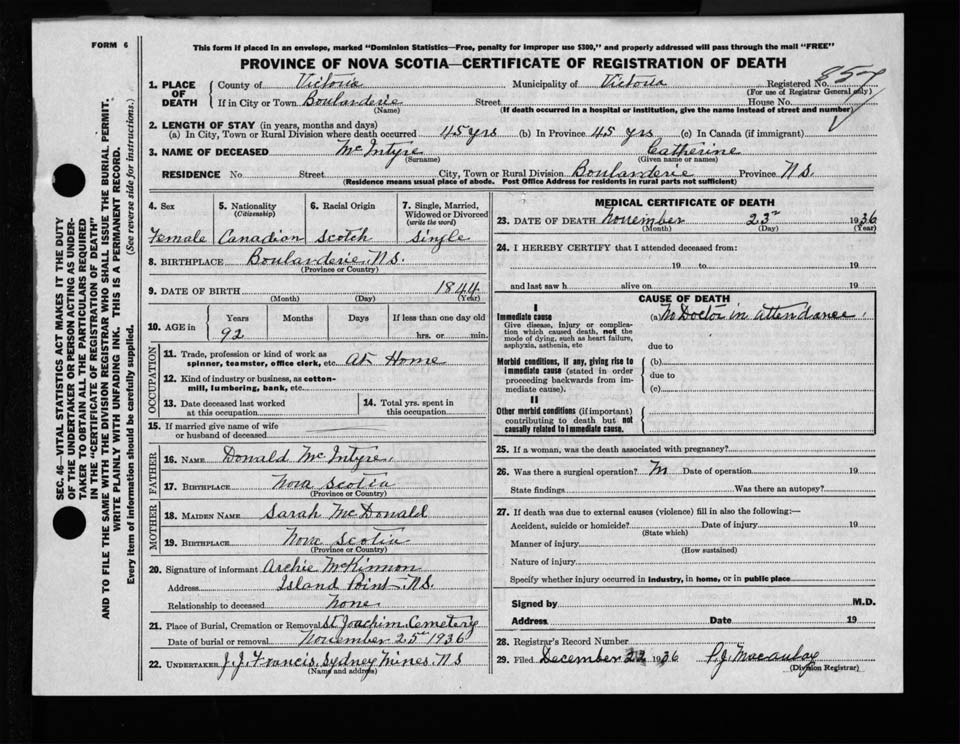 FORM 6
This form if placed in an envelope, marked "Dominion Statistics—Free, penalty for improper use $300," and properly addressed will pass through the mail "FREE"
PROVINCE OF NOVA SCOTIA—CERTIFICATE OF REGISTRATION OF DEATH
SEC. 46—VITAL STATISTICS ACT MAKES IT THE DUTY
OF THE UNDERTAKER OR PERSON ACTING AS UNDER-
TAKER TO OBTAIN ALL THE PARTICULARS REQUIRED
IN THE "CERTIFICATE OF REGISTRATION OF DEATH"
AND TO FILE THE SAME WITH THE DIVISION REGISTRAR WHO SHALL ISSUE THE BURIAL PERMIT.
WRITE PLAINLY WITH UNFADING INK. THIS IS A PERMANENT RECORD.
Every item of information should be carefully supplied. (See reverse side for instructions.)
1. PLACE OF DEATH
County of Victoria Municipality of Victoria Registered No. 857
(For use of Registrar General only)
If in City or Town Boulanderie Street House No.
(Name) (If death occurred in a hospital or institution, give the name instead of street and number)
2. LENGTH OF STAY (in years, months and days)
(a) In City, Town or Rural Division where death occurred 45 yrs (b) In Province 45 yrs (c) In Canada (if immigrant)
3. NAME OF DECEASED McIntyre Catherine
(Surname) (Given name or names)
RESIDENCE No. Street City, Town or Rural Division Boulanderie Province N.S.
(Residence means usual place of abode. Post Office Address for residents in rural parts not sufficient)
4. Sex
Female
5. Nationality
(Citizenship)
Canadian
6. Racial Origin
Scotch
7. Single, Married,
Widowed or Divorced
(write the word)
Single
8. BIRTHPLACE Boulanderie, N.S.
(Province or Country)
9. DATE OF BIRTH 1844
(Month) (Day) (Year)
10. AGE in
Years Months Days If less than one day old
92 hrs. or min.
OCCUPATION
11. Trade, profession or kind of work as
spinner, teamster, office clerk, etc. At Home
12. Kind of industry or business, as cotton-
mill, lumbering, bank, etc.
13. Date deceased last worked
at this occupation
14. Total yrs. spent in
this occupation
15. If married give name of wife
or husband of deceased
FATHER
16. NAME Donald McIntyre
17. BIRTHPLACE Nova Scotia
(Province or Country)
MOTHER
18. MAIDEN NAME Sarah McDonald
19. BIRTHPLACE Nova Scotia
(Province or Country)
20. Signature of informant Archie McKinnon
Address Island Point N.S.
Relationship to deceased None
21. Place of Burial, Cremation or Removal St Joachim Cemetery
Date of burial or removal November 25th 1936
22. UNDERTAKER J.J. Francis, Sydney Mines, N.S
(Name and address)
MEDICAL CERTIFICATE OF DEATH
23. DATE OF DEATH November 23r 1936
(Month) (Day) (Year)
24. I HEREBY CERTIFY that I attended deceased from:
19 to 19
and last saw h alive on 19
CAUSE OF DEATH
I
Immediate cause (a) No Doctor in attendance.
Give disease, injury or complica-
tion which caused death, not the
mode of dying, such as heart failure,
asphyxia, asthenia, etc
due to
Morbid conditions, if any, giving rise to
immediate cause (stated in order
proceeding backwards from im-
mediate cause).
(b)
due to
(c)
II
Other morbid conditions (if important)
contributing to death but not
causally related to immediate cause.
25. If a woman, was the death associated with pregnancy?
26. Was there a surgical operation? Date of operation 19
State findings Was there an autopsy?
27. If death was due to external causes (violence) fill in also the following:—
Accident, suicide or homicide? Date of injury 19
(State which)
Manner of injury
(How sustained)
Nature of injury
Specify whether injury occurred in industry, in home, or in public place
Signed by M.D.
Address Date 19
28. Registrar's Record Number
29. Filed December 22 1936 P.J. Macaulay
(Division Registrar)